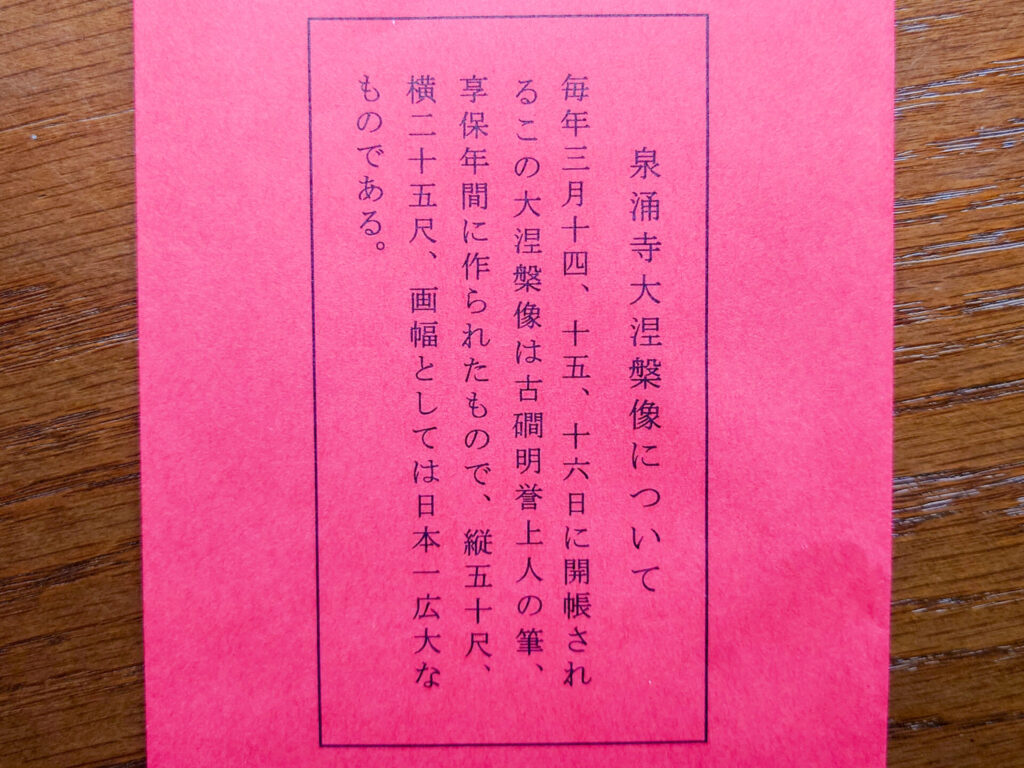 泉涌寺大涅槃像について
毎年三月十四、十五、十六日に開帳され
るこの大涅槃像は古磵明誉上人の筆、
享保年間に作られたもので、縦五十尺、
横二十五尺、画幅としては日本一広大な
ものである。